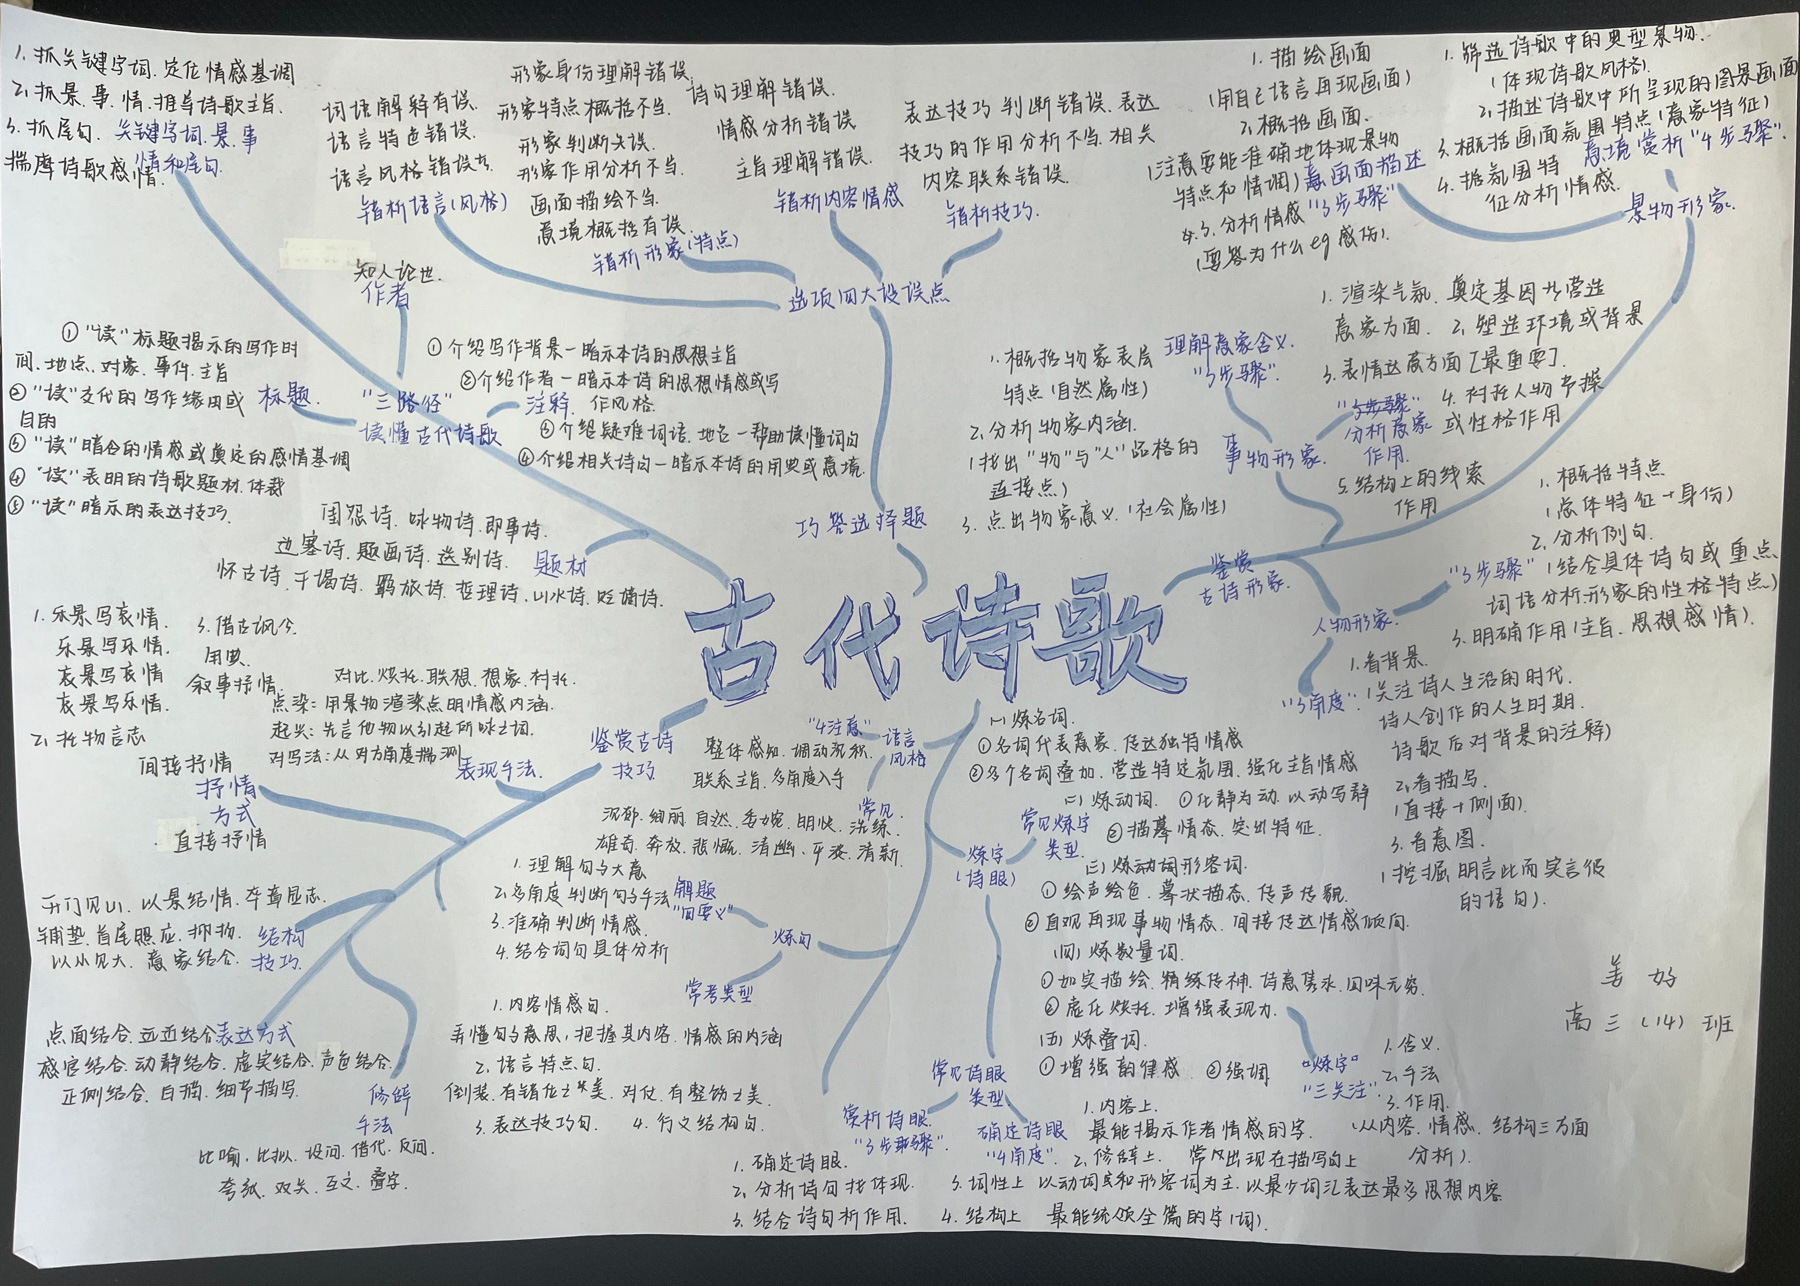 1. 抓关键字词、定位情感基调
2. 抓景、事、情、推导诗歌主旨.
3. 抓尾句.
揣摩诗歌感情.
关键字词、景、事
情和尾句.
词语解释有误.
语言特色错误.
语言风格错误.
错析语言(风格)
形象身份理解错误.
形象特点概括不当.
形象判断失误.
形象作用分析不当.
画面描绘不当.
意境概括有误.
错析形象(特点)
诗句理解错误.
情感分析错误
主旨理解错误.
错析内容情感
表达技巧判断错误、表达
技巧的作用分析不当、相关
内容联系错误.
错析技巧.
选项四大设误点
巧答选择题
1. 描绘画面
(用自己语言再现画面)
2. 概括画面.
(注意要能准确地体现景物
特点和情调)
3. 分析情感
(要答为什么eg感伤)
意画面描述
"3步骤"
1. 筛选诗歌中的典型景物.
(体现诗歌风格)
2. 描述诗歌中所呈现的图景画面
3. 概括画面氛围特点(意象特征)
4. 据氛围特
征分析情感.
意境赏析"4步骤"
景物形象.
知人论世.
作者
"三路径"
读懂古代诗歌
标题.
①"读"标题揭示的写作时
间、地点、对象、事件、主旨
②"读"交代的写作缘由或
目的
③"读"暗含的情感或奠定的感情基调
④"读"表明的诗歌题材、体裁
⑤"读"暗示的表达技巧.
注释.
①介绍写作背景—暗示本诗的思想主旨
②介绍作者—暗示本诗的思想情感或写
作风格.
③介绍疑难词语、地名—帮助读懂词句
④介绍相关诗句—暗示本诗的用典或意境.
题材
闺怨诗、咏物诗、即事诗、
边塞诗、题画诗、送别诗、
怀古诗、干谒诗、羁旅诗、哲理诗、山水诗、贬谪诗.
古代诗歌
鉴赏
古诗形象.
事物形象.
理解意象含义.
"3步骤".
1. 概括物象表层
特点(自然属性)
2. 分析物象内涵.
(找出"物"与"人"品格的
连接点)
3. 点出物象意义.(社会属性)
"3步骤"
分析意象
作用.
1. 渲染气氛、奠定基因
营造
意象方面. 2. 塑造环境或背景
3. 表情达意方面[最重要].
4. 衬托人物节操
或性格作用
5. 结构上的线索
作用
人物形象.
"3步骤"
1. 概括特点
(总体特征+身份)
2. 分析例句.
(结合具体诗句或重点
词语分析形象的性格特点)
3. 明确作用(主旨、思想感情).
"3角度".
1. 看背景.
(关注诗人生活的时代.
诗人创作的人生时期.
诗歌后对背景的注释)
2. 看描写.
(直接+侧面).
3. 看意图.
(挖掘明言此而实言彼
的语句).
鉴赏古诗
技巧
表现手法.
对比、烘托、联想、想象、衬托
点染: 用景物渲染点明情感内涵.
起兴: 先言他物以引起所咏之词.
对写法: 从对方角度揣测
抒情
方式
间接抒情
1. 乐景写哀情.
乐景写乐情.
哀景写哀情
哀景写乐情.
2. 托物言志
3. 借古讽今.
用典.
叙事抒情.
直接抒情
结构
技巧.
开门见山、以景结情、卒章显志.
铺垫、首尾照应、抑扬、
以小见大、意象结合.
表达方式
点面结合、远近结合
感官结合、动静结合、虚实结合、声色结合.
正侧结合、白描、细节描写.
修辞
手法
比喻、比拟、设问、借代、反问、
夸张、双关、互文、叠字.
语言
风格
"4注意"
整体感知、调动沉积、
联系主旨、多角度入手
常见.
沉郁、绚丽、自然、委婉、明快、洗练、
雄奇、奔放、悲慨、清幽、平淡、清新
炼句
解题
"四要义"
1. 理解句子大意
2. 多角度判断句子手法
3. 准确判断情感.
4. 结合词句具体分析
常考类型
1. 内容情感句.
弄懂句子意思, 把握其内容、情感的内涵
2. 语言特点句.
倒装、有错位之美、对仗、有整饬之美.
3. 表达技巧句. 4. 行文结构句.
炼字
(诗眼)
常见炼字
类型.
(一)炼名词.
①名词代表意象、传达独特情感
②多个名词叠加、营造特定氛围、强化主旨情感
(二)炼动词. ①化静为动、以动写静
②描摹情态、突出特征.
(三)炼动词形容词.
①绘声绘色、摹状描态、传声传貌.
②直观再现事物情态、间接传达情感倾向.
(四)炼数量词.
①如实描绘、精练传神、诗意隽永、回味无穷.
②虚化烘托、增强表现力.
(五)炼叠词.
①增强韵律感 ②强调
"炼字"
"三关注"
1. 含义.
2. 手法
3. 作用.
(从内容、情感、结构三方面
分析).
常见诗眼
类型
赏析诗眼.
"3步骤".
1. 确定诗眼.
2. 分析诗句找体现.
3. 结合诗句析作用.
确定诗眼
"4角度".
1. 内容上.
最能揭示作者情感的字.
2. 修辞上. 常出现在描写句上
3. 词性上 以动词和形容词为主、以最少词汇表达最多思想内容
4. 结构上 最能统领全篇的字(词).
姜 好
高三(14)班